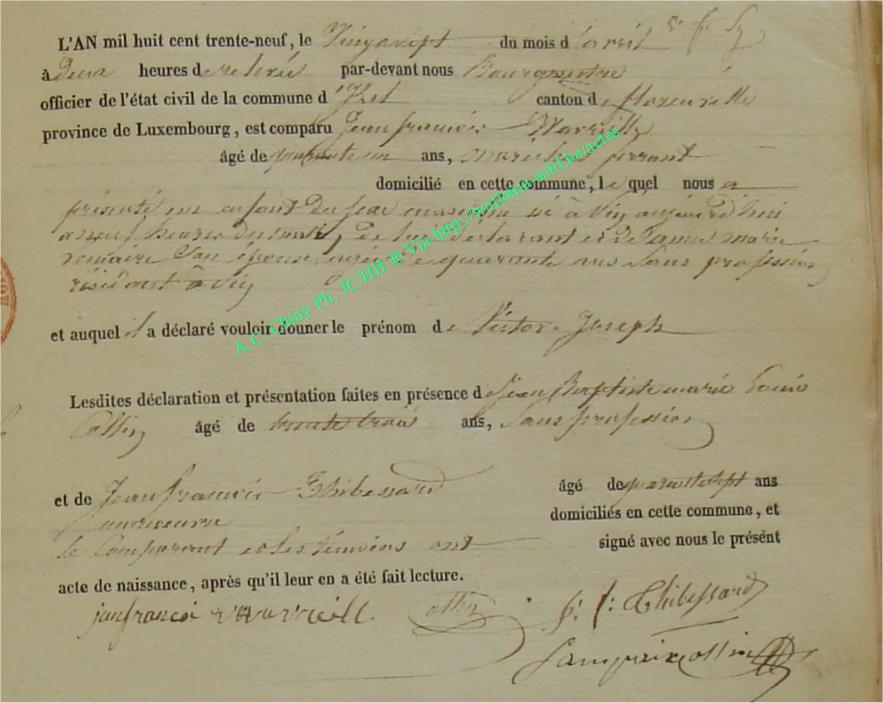 L'AN mil huit cent trente-neuf, le Vingt sept du mois d'avril
à Deux heures de relevée par-devant nous Bourgmestre
officier de l'état civil de la commune d'Izel canton de florenville
province de Luxembourg, est comparu Jean françois
âgé de quarante un ans, maréchal ferrant
domicilié en cette commune, le quel nous a
présenté un enfant du sexe masculin né à aujourd'hui
a neuf heures du matin, de lui déclarant et de marie
son épouse agée de quarante ans sans profession
résidant à
et auquel il a déclaré vouloir donner le prénom de Victor Joseph
Lesdites déclaration et présentation faites en présence de Jean Baptiste marie Louis
Collin âgé de trente trois ans, sans profession
et de Jean françois Thibessard âgé de quarante sept ans
domiciliés en cette commune, et
le Comparant et les témoins ont signé avec nous le présent
acte de naissance, après qu'il leur en a été fait lecture.
jan françoi Collin j: f: Thibessard
Collin
A.C. Chiny Ph. JC.HB ® Via http://wallonia-asbl.be/actes